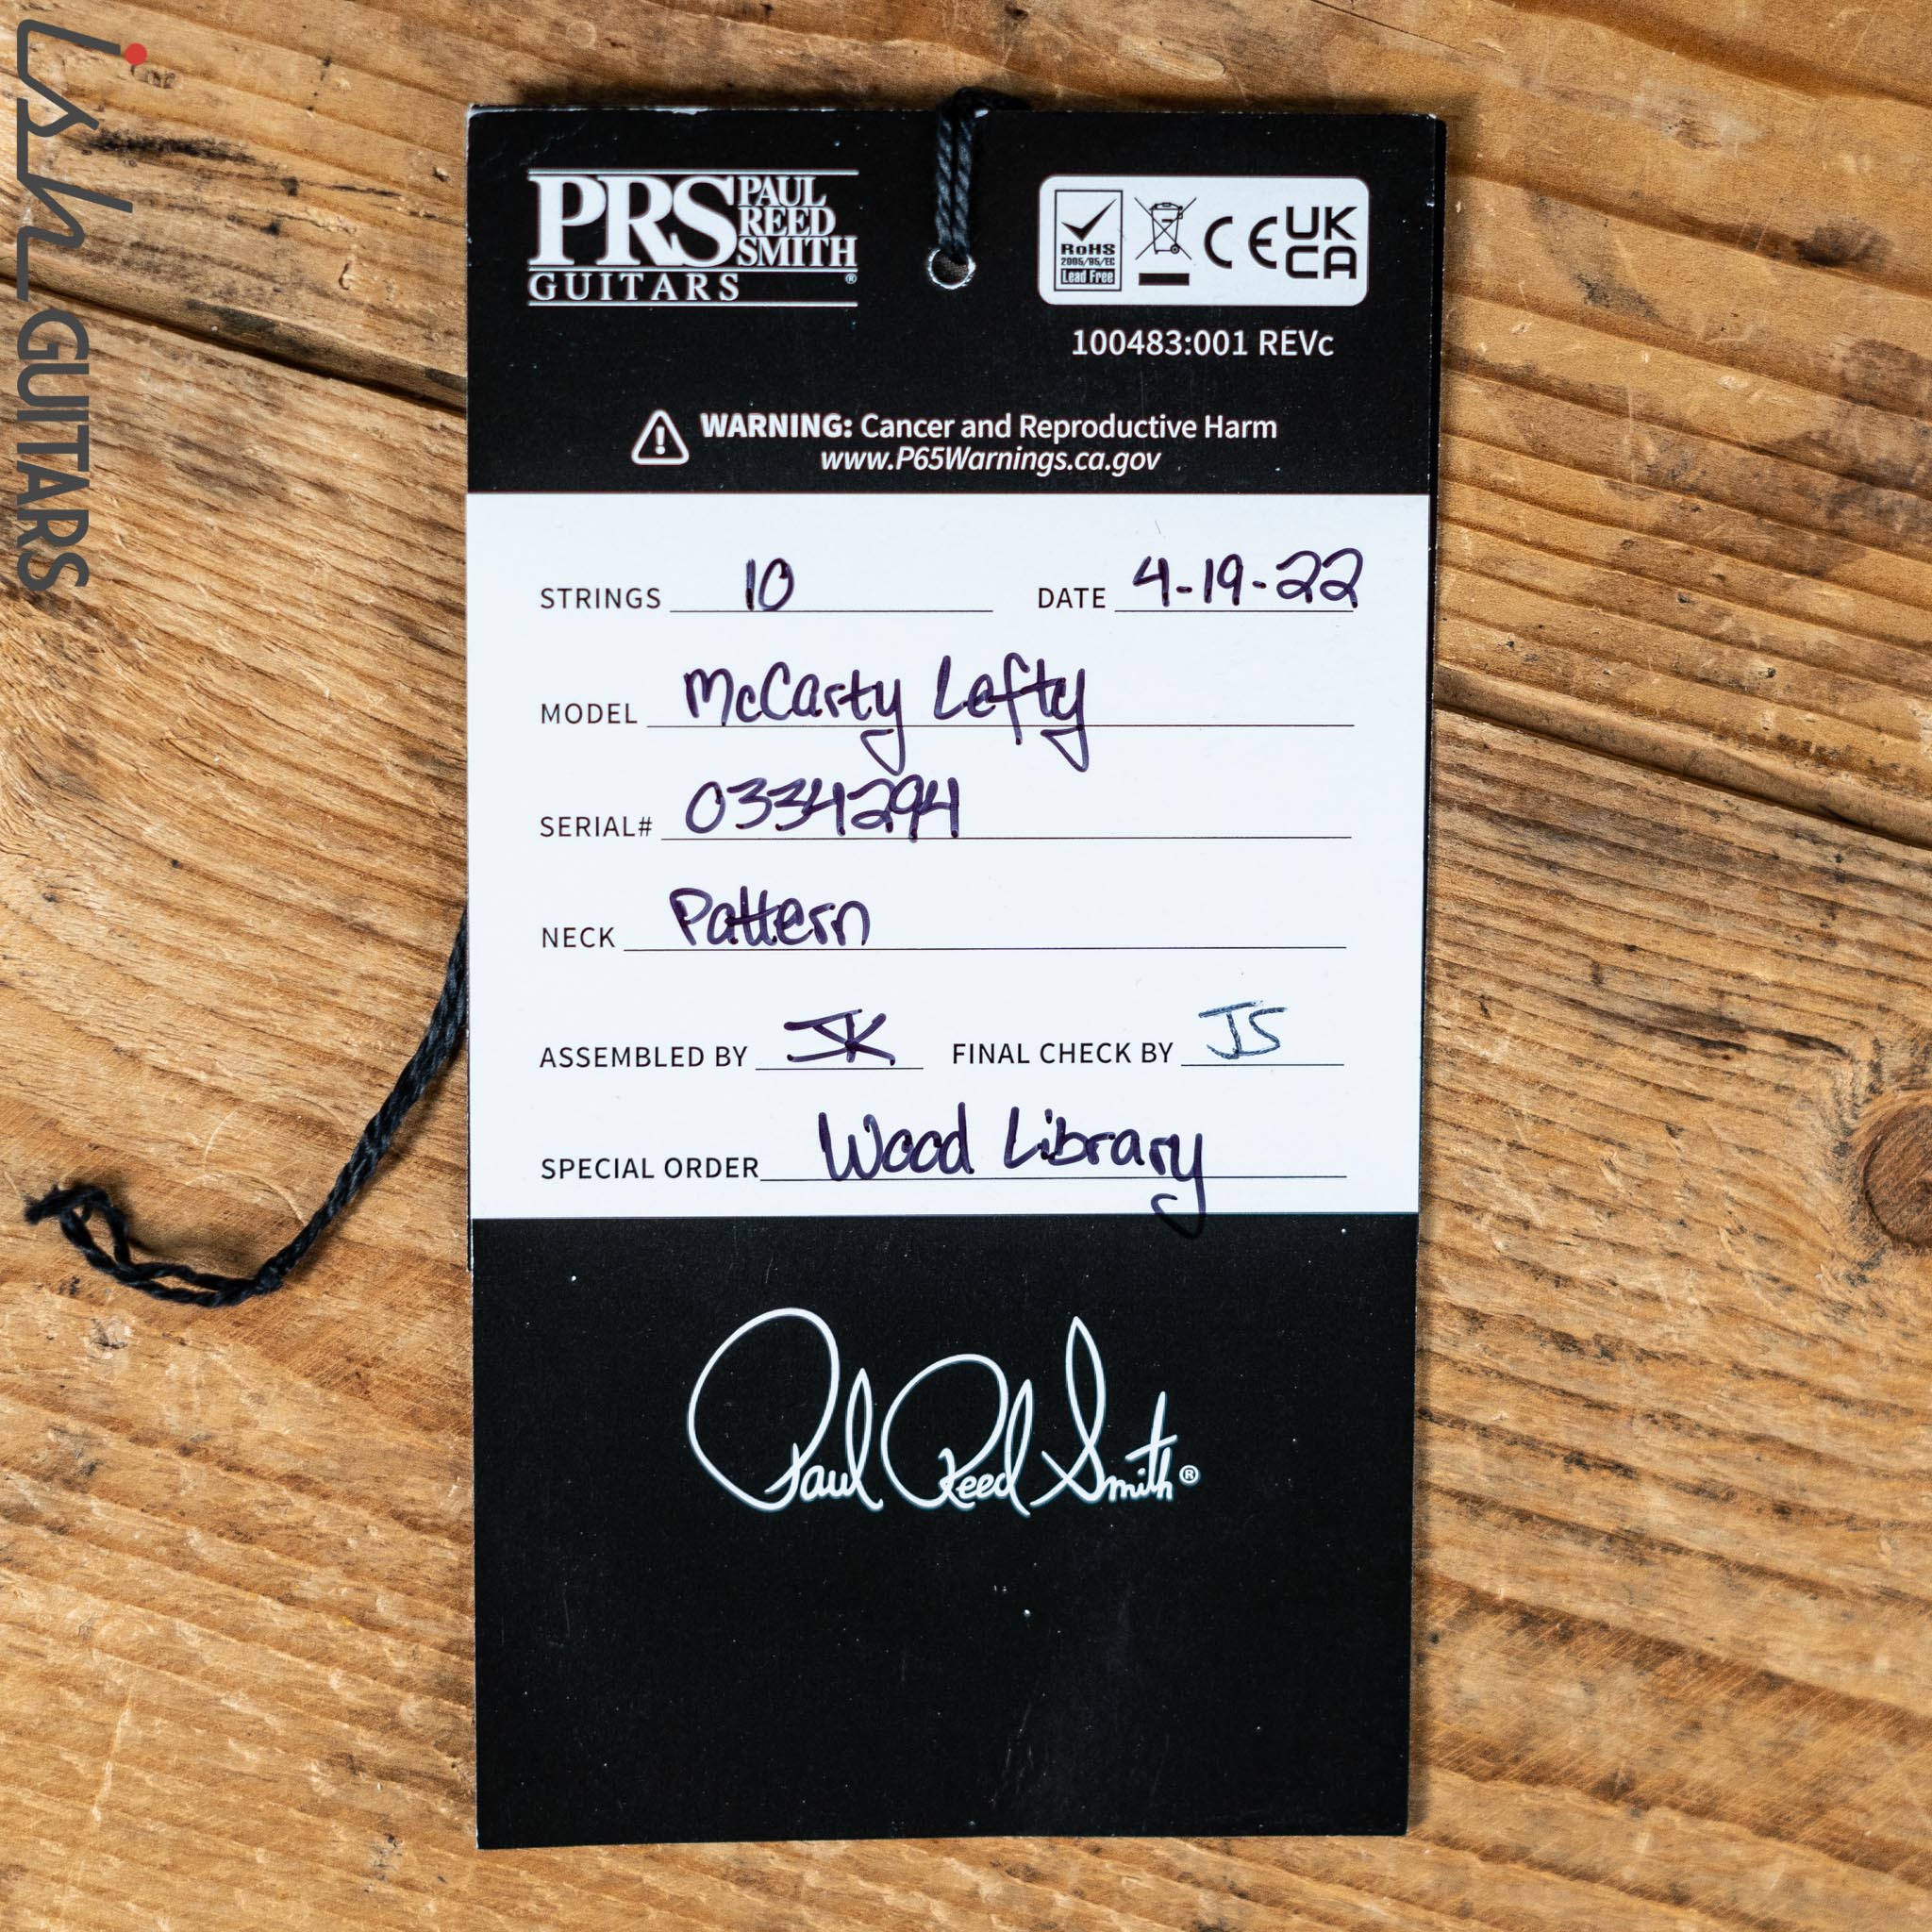 ish GUITARS
PRS PAUL
REED
SMITH
GUITARS ®
RoHS
2005/95/EC
Lead Free
CE UK
CA
100483:001 REVc
WARNING: Cancer and Reproductive Harm
www.P65Warnings.ca.gov
STRINGS 10 DATE 4-19-22
MODEL McCarty Lefty
SERIAL# 0334294
NECK Pattern
ASSEMBLED BY JK FINAL CHECK BY JS
SPECIAL ORDER Wood Library
Paul Reed Smith®